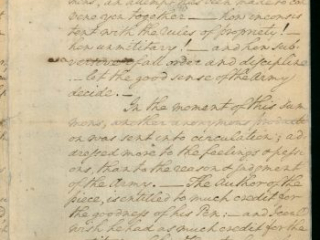 mous, an attempt has been made to con
vene you together — how inconsis
tent with the rules of propriety! —
how unmilitary! — and how sub
versive of all order and discipline
— let the good sense of the Army
decide. —
In the moment of this Sum
mons, another anonymous producti
on was sent into circulation; ad
dressed more to the feelings & passi
ons, than to the reason & judgment
of the Army. — The Author of the
piece, is entitled to much credit for
the goodness of his Pen: — and I could
wish he had as much credit for the